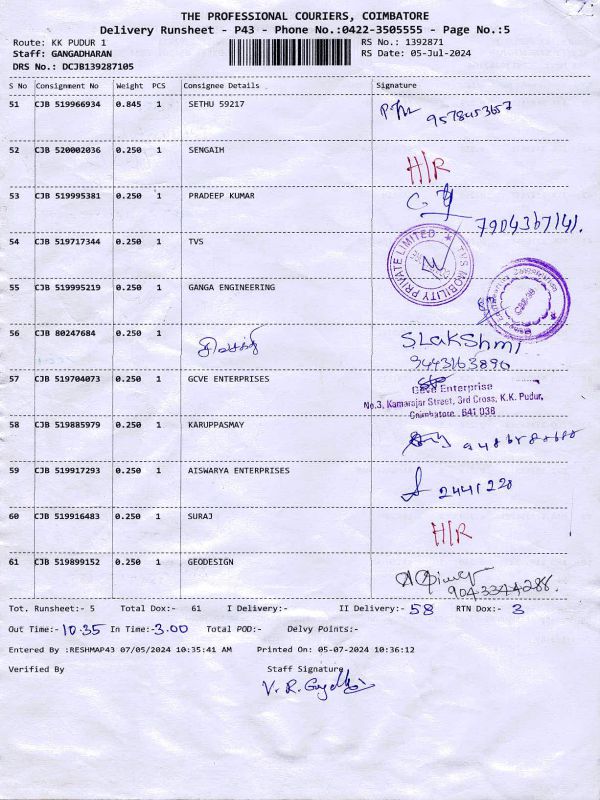 THE PROFESSIONAL COURIERS, COIMBATORE
Delivery Runsheet - P43 - Phone No.:0422-3505555 - Page No.:5
Route: KK PUDUR 1 RS No.: 1392871
Staff: GANGADHARAN RS Date: 05-Jul-2024
DRS No.: DCJB139287105
S No Consignment No Weight PCS Consignee Details Signature
51 CJB 519966934 0.845 1 SETHU 59217
9578453657
52 CJB 520002036 0.250 1 SENGAIH H/R
53 CJB 519995381 0.250 1 PRADEEP KUMAR
7904367141.
54 CJB 519717344 0.250 1 TVS TVS MOBILITY PRIVATE LIMITED
55 CJB 519995219 0.250 1 GANGA ENGINEERING
56 CJB 80247684 0.250 1 SLakShmi
9443163890
57 CJB 519704073 0.250 1 GCVE ENTERPRISES Enterprise
No.3, Kamarajar Street, 3rd Cross, K.K. Pudur,
Coimbatore - 641 038
58 CJB 519885979 0.250 1 KARUPPASMAY
59 CJB 519917293 0.250 1 AISWARYA ENTERPRISES 2441220
60 CJB 519916483 0.250 1 SURAJ H/R
61 CJB 519899152 0.250 1 GEODESIGN
9043344286.
Tot. Runsheet:- 5 Total Dox:- 61 I Delivery:- II Delivery:- 58 RTN Dox:- 3
Out Time:- 10.35 In Time:- 3.00 Total POD:- Delvy Points:-
Entered By :RESHMAP43 07/05/2024 10:35:41 AM Printed On: 05-07-2024 10:36:12
Verified By Staff Signature